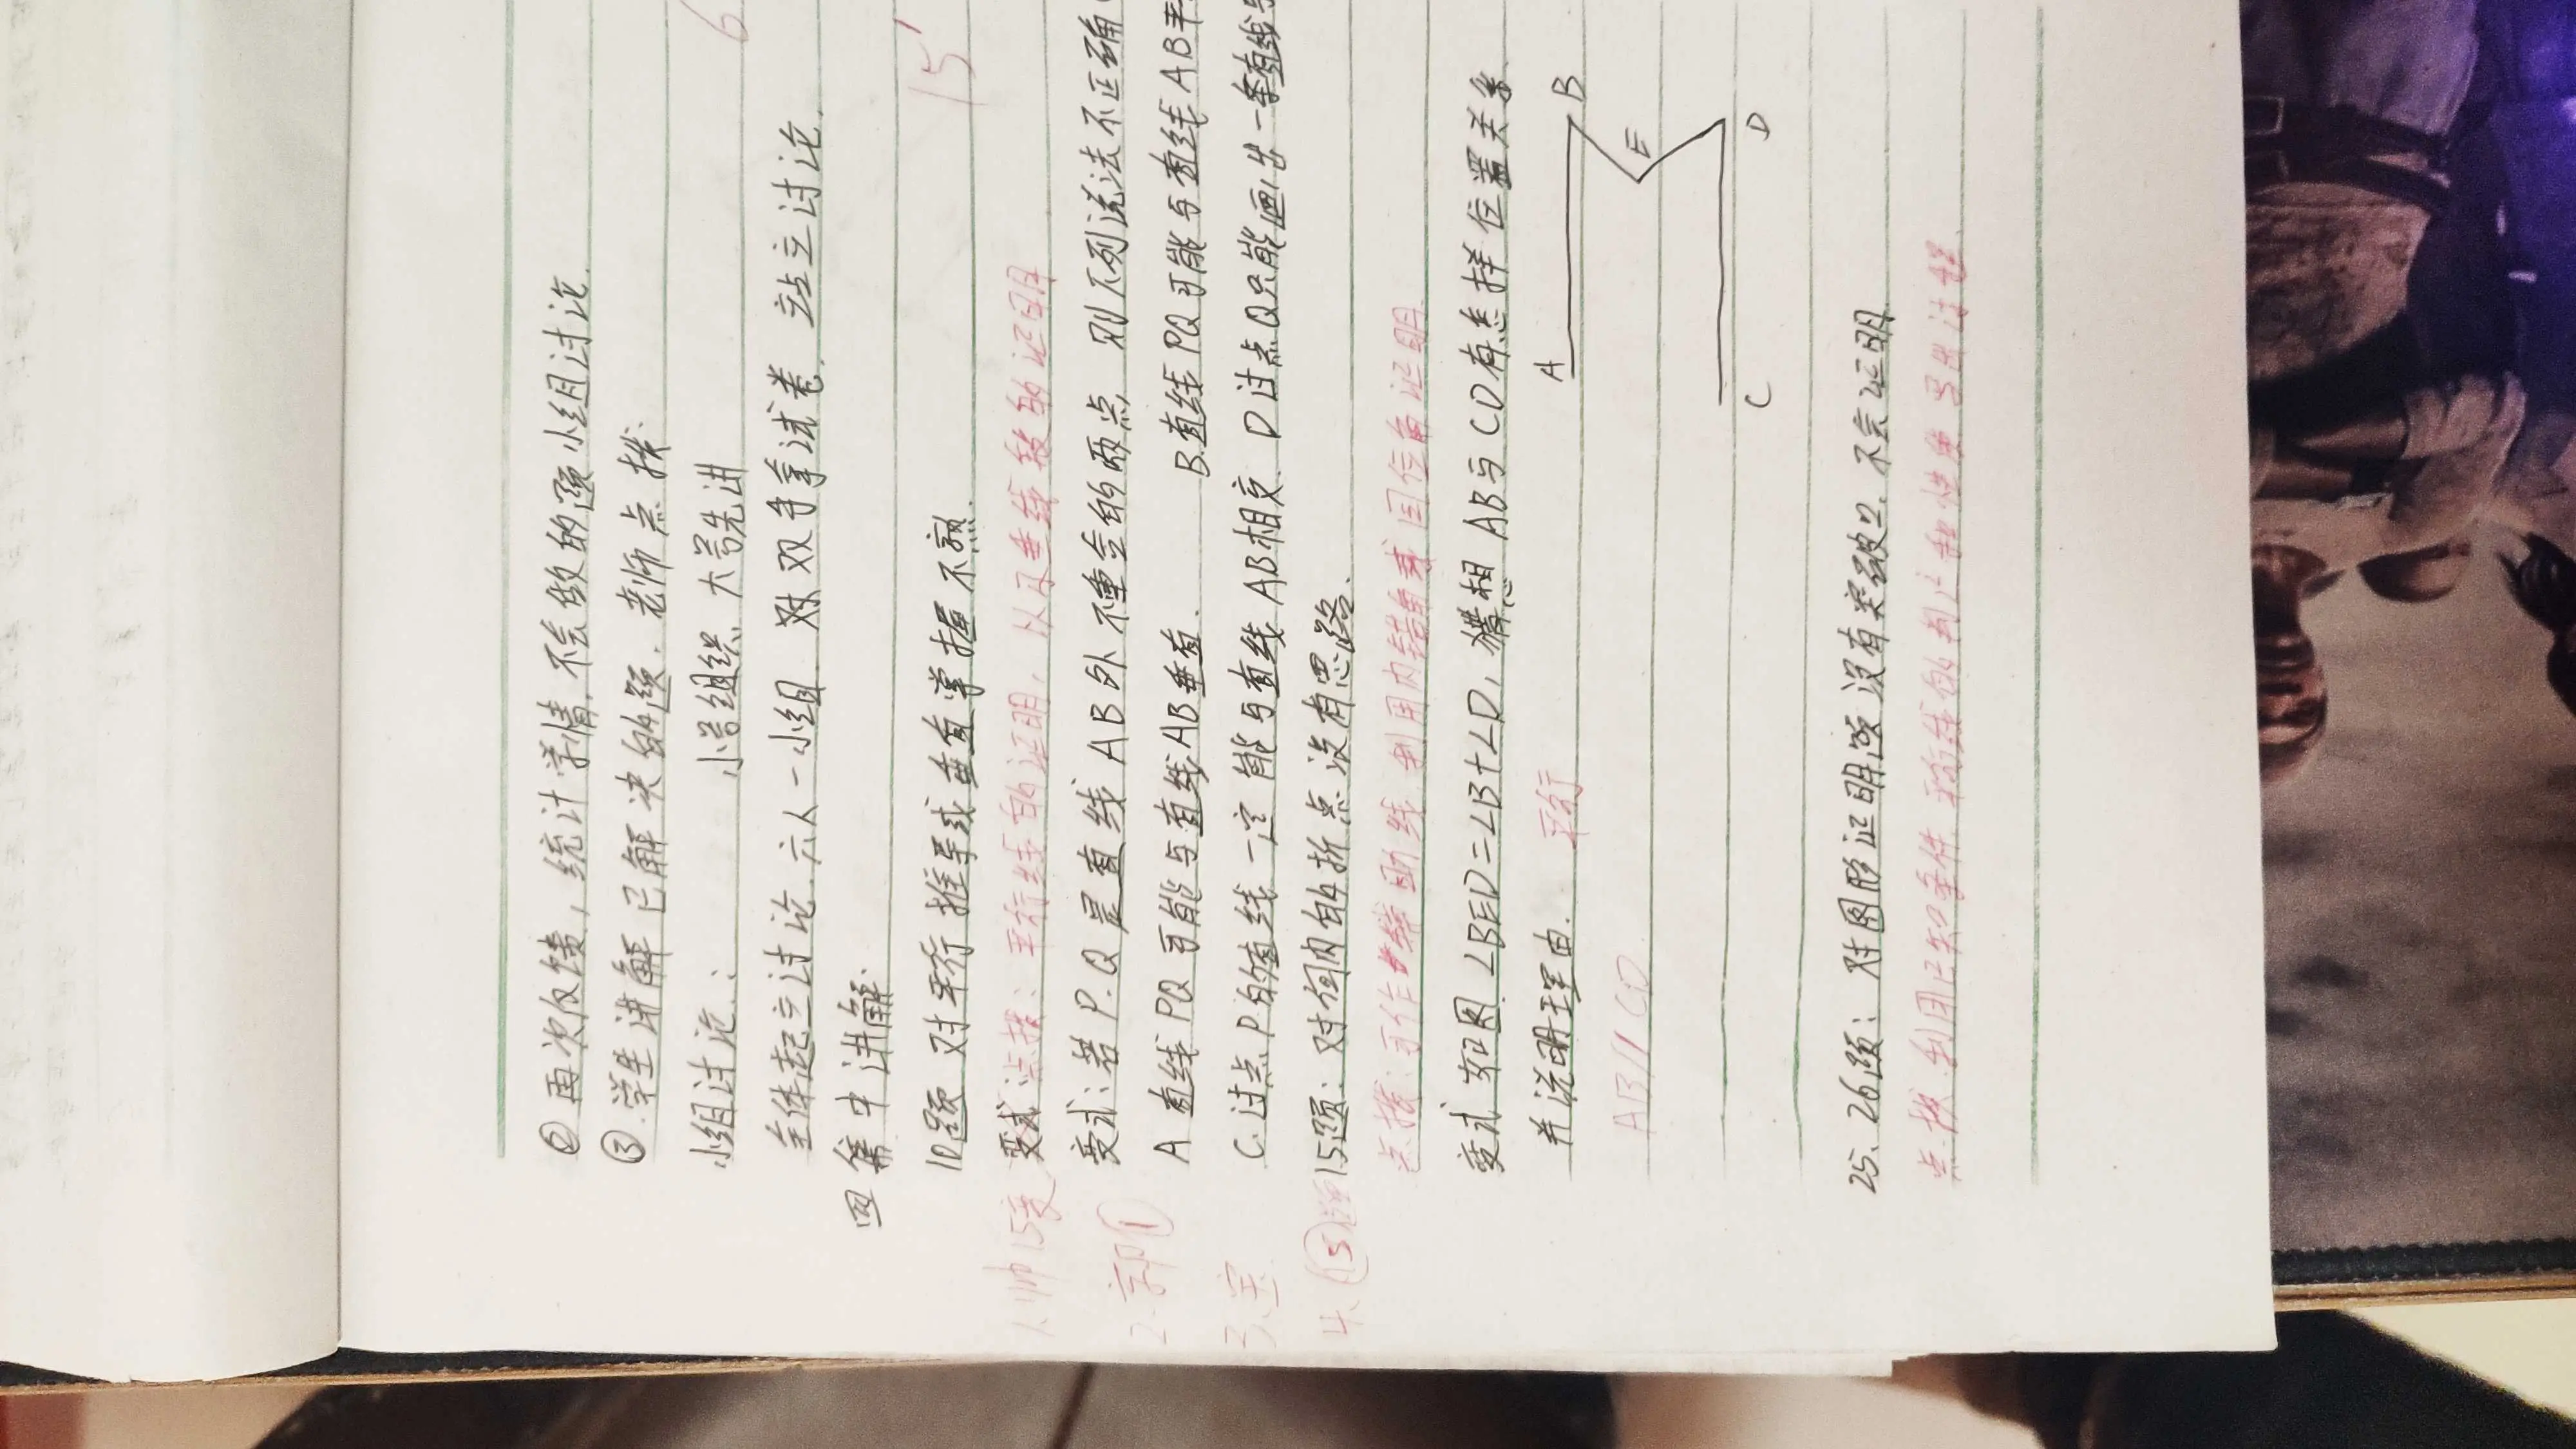 ②再次反馈，统计学情，不会做的题小组讨论.
6
③.学生讲解已解决的题.老师点拨.
小组讨论.： 小号组织.大号先讲
全体起立讨论.六人一小组.对双手拿试卷.站立讨论.
四 集中讲解.
15'
10题 对平行推导或垂直掌握不熟.
点拨：平行线的证明，以及垂线段的证明
变式：若P.Q是直线AB外不重合的两点，则下列说法不正确
A 直线PQ可能与直线AB垂直. B.直线PQ可能与直线AB平
C.过点P的直线一定能与直线AB相交. D过点Q只能画出一条直线与
15题：对何内的折点没有思路.
点拨：可作辅助线 利用内错角或同位角证明.
变式 如图.∠BED=∠B+∠D，猜想AB与CD有怎样位置关系.
并说明理由. 平行
AB//CD
A B
E
C D
25、26题：对图形证明题没有突破口.不会证明.
点拨 利用已知条件 平行线的判定和性质写出过程.
1.帅15变
2.郭①
3.宝
4.⑮题